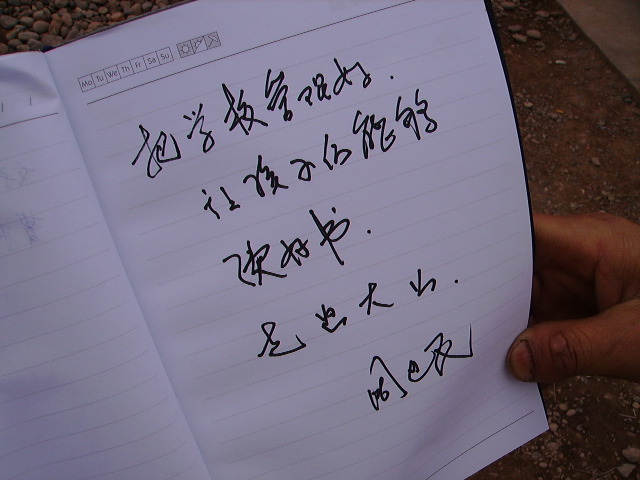 Mo Tu We Th Fr Sa Su
把学校管理好.
让孩子们能够
读好书.
走出大山.